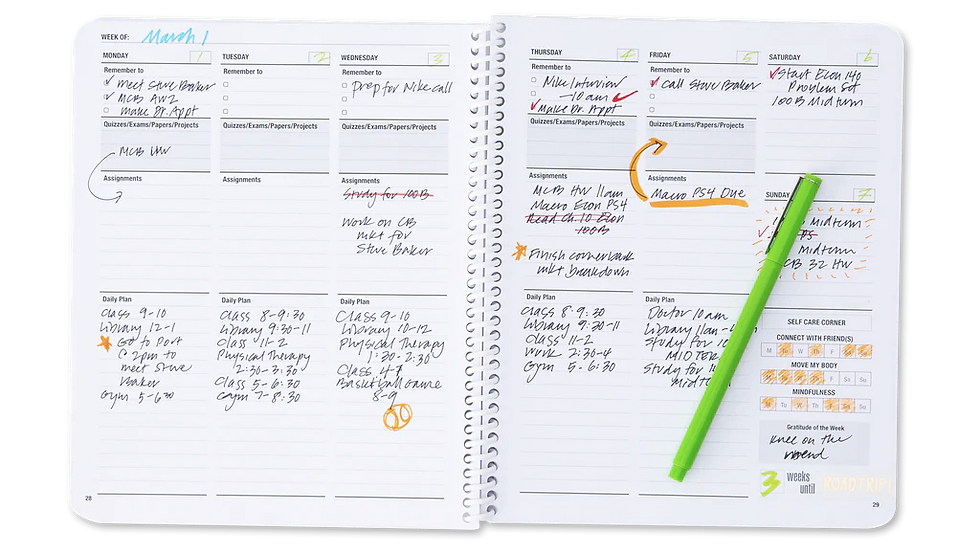 WEEK OF: March 1
MONDAY 1
Remember to
meet Steve Baker
MCB AW2
make Dr. Appt
Quizzes/Exams/Papers/Projects
MCB HW
Assignments
Daily Plan
Class 9-10
Library 12-1
Go to Port
@ 2pm to
meet Steve
Baker
Gym 5-630
28
TUESDAY 2
Remember to
Quizzes/Exams/Papers/Projects
Assignments
Daily Plan
Class 8-9:30
Library 9:30-11
Class 11-2
Physical Therapy
2:30-3:30
Class 5-6:30
Gym 7-8:30
WEDNESDAY 3
Remember to
Prep for Nike call
Quizzes/Exams/Papers/Projects
Assignments
Study for 100B
Work on CB
mkt for
Steve Baker
Daily Plan
Class 9-10
Library 10-12
Physical Therapy
1:30-2:30
Class 4-7
Basketball Game
8-9
THURSDAY 4
Remember to
Nike Interview
-10am
Make Dr. Appt
Quizzes/Exams/Papers/Projects
Assignments
MCB HW 11am
Macro Econ PS4
Read Ch. 10 Econ
100B
Finish cornerback
mkt breakdown
Daily Plan
Class 8-9:30
Library 9:30-11
Class 11-2
Work 2:30-4
Gym 5-6:30
FRIDAY 5
Remember to
Call Steve Baker
Quizzes/Exams/Papers/Projects
Assignments
Macro PS4 Due
Daily Plan
Doctor 10am
Library 11am-
Study for 10
Study for 1
SATURDAY 6
Start Econ 140
Problem Set
100B Midterm
SUNDAY 7
Midterm
PS
Midterm
CB 32 HW
SELF CARE CORNER
CONNECT WITH FRIEND(S)
M Tu W Th F Sa Su
MOVE MY BODY
M Tu W Th F Sa Su
MINDFULNESS
M Tu W Th F Sa Su
Gratitude of the Week
Knee on the
mend
3 weeks until ROADTRIP!
29